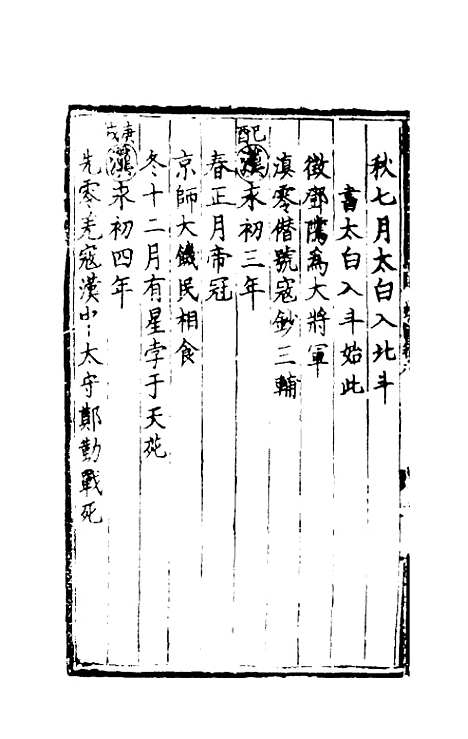 秋七月太白入北斗
書太白入斗始此
徵鄧隲為大將軍
滇零僭號寇鈔三輔
己酉漢永初三年
春正月帝冠
京師大饑民相食
冬十二月有星孛于天苑
庚戌漢永初四年
先零羌寇漢中太守鄭勤戰死